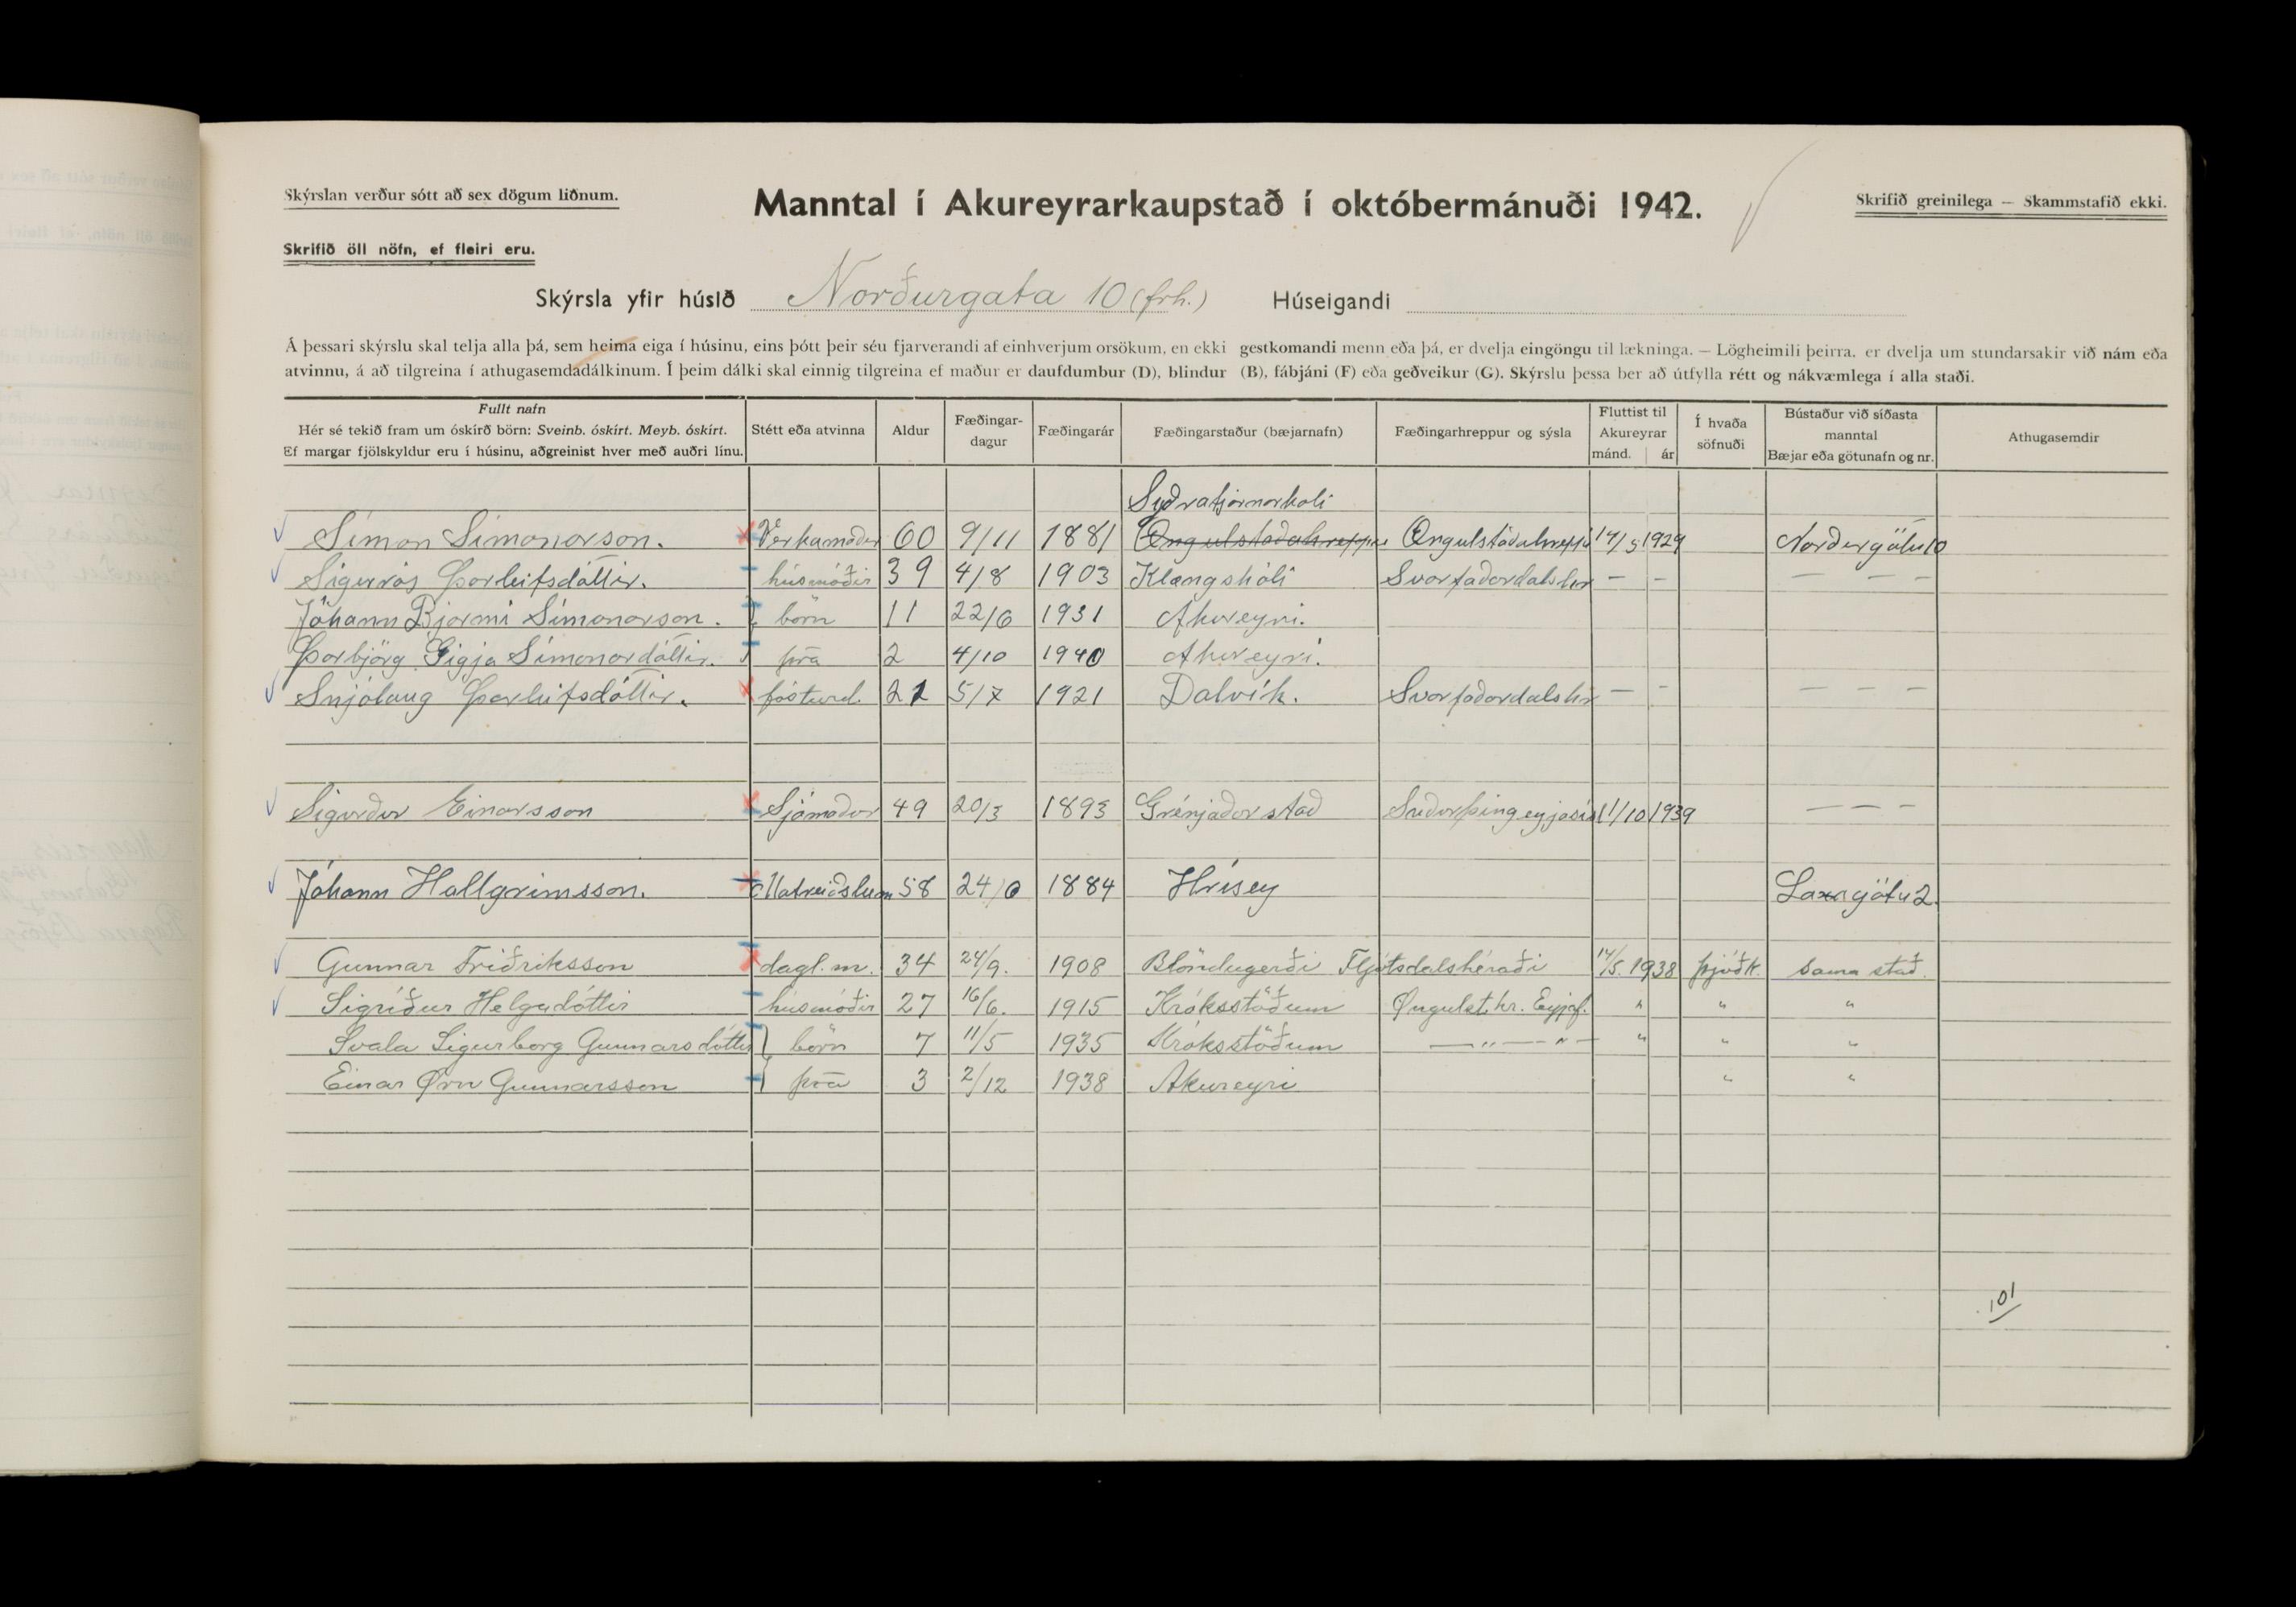 Skýrslan verður sótt að sex dögum liðnum.
Manntal í Akureyrarkaupstað í októbermánuði 1942.
Skrifið greinilega — Skammstafið ekki.
Skrifið öll nöfn, ef fleiri eru.
Skýrsla yfir húsið Norðurgata 10 (frh.) Húseigandi
Á þessari skýrslu skal telja alla þá, sem heima eiga í húsinu, eins þótt þeir séu fjarverandi af einhverjum orsökum, en ekki gestkomandi menn eða þá, er dvelja eingöngu til lækninga. — Lögheimili þeirra, er dvelja um stundarsakir við nám eða
atvinnu, á að tilgreina í athugasemdadálkinum. Í þeim dálki skal einnig tilgreina ef maður er daufdumbur (D), blindur (B), fábjáni (F) eða geðveikur (G). Skýrslu þessa ber að útfylla rétt og nákvæmlega í alla staði.
Fullt nafn
Hér sé tekið fram um óskírð börn: Sveinb. óskírt. Meyb. óskírt.
Ef margar fjölskyldur eru í húsinu, aðgreinist hver með auðri línu.
Stétt eða atvinna
Aldur
Fæðingar-
dagur
Fæðingarár
Fæðingarstaður (bæjarnafn)
Fæðingarhreppur og sýsla
Fluttist til
Akureyrar
mánd. ár
Í hvaða
söfnuði
Bústaður við síðasta
manntal
Bæjar eða götunafn og nr.
Athugasemdir
Símon Símonarson. Verkamaður 60 9/11 1881 Öngulstaðahreppi Öngulstaðahreppi 14/5 1929 Norðurgötu 10
Sigurrós Þorleifsdóttir. húsmóðir 39 4/8 1903 Klængshóli Svarfaðardalshr — — — — —
Jóhann Bjarmi Símonarson. } börn 11 22/6 1931 Akureyri.
Þorbjörg Gígja Símonardóttir. } þra 2 4/10 1940 Akureyri.
Snjólaug Þorleifsdóttir. fósturd. 21 5/7 1921 Dalvík. Svarfaðardalshr — - — — —
Sigurður Einarsson Sjómaður 49 20/3 1893 Grenjaðarstað Suðurþingeyjasís 11/10 1939 — — —
Jóhann Hallgrímsson. Matreiðslum 58 24/6 1884 Hrísey Laxagötu 2.
Gunnar Friðriksson dagl.m. 34 24/9. 1908 Blöndugerði Fljótsdalshéraði 14/5. 1938 þjóðk. sama stað.
Sigríður Helgadóttir húsmóðir 27 16/6. 1915 Króksstöðum Öngulst.hr. Eyjaf. " " "
Svala Sigurborg Gunnarsdóttir } börn 7 11/5 1935 Króksstöðum — " — — " — " " "
Einar Örn Gunnarsson } þra 3 2/12 1938 Akureyri " "
101